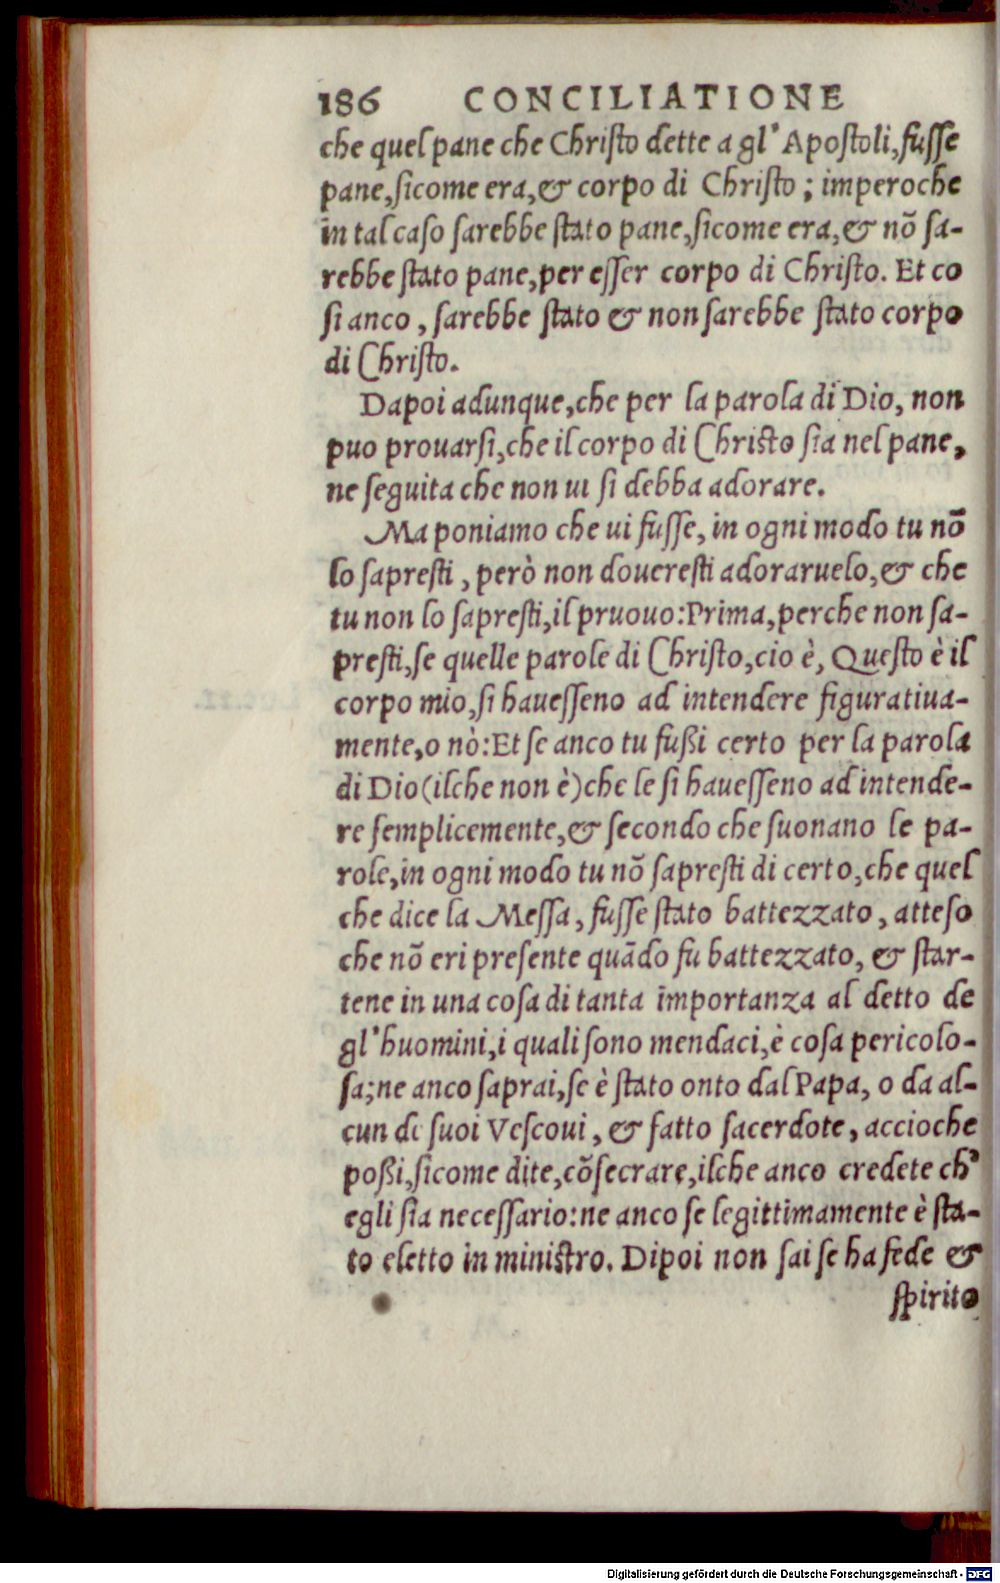 186 CONCILIATIONE
che quel pane che Christo dette a gl' Apostoli, fusse
pane, sicome era, & corpo di Christo; imperoche
in tal caso sarebbe stato pane, sicome era, & nõ sa-
rebbe stato pane, per esser corpo di Christo. Et co
si anco, sarebbe stato & non sarebbe stato corpo
di Christo.
Dapoi adunque, che per la parola di Dio, non
puo prouarsi, che il corpo di Christo sia nel pane,
ne seguita che non ui si debba adorare.
Ma poniamo che ui fusse, in ogni modo tu nõ
lo sapresti, però non doueresti adoraruelo, & che
tu non lo sapresti, il pruouo: Prima, perche non sa-
presti, se quelle parole di Christo, cio è, Questo è il
corpo mio, si hauesseno ad intendere figuratiua-
mente, o nò: Et se anco tu fußi certo per la parola
di Dio (ilche non è) che le si hauesseno ad intende-
re semplicemente, & secondo che suonano le pa-
role, in ogni modo tu nõ sapresti di certo, che quel
che dice la Messa, fusse stato battezzato, atteso
che nõ eri presente quãdo fu battezzato, & star-
tene in una cosa di tanta importanza al detto de
gl'huomini, i quali sono mendaci, è cosa pericolo-
sa; ne anco saprai, se è stato onto dal Papa, o da al-
cun de suoi Vescoui, & fatto sacerdote, accioche
poßi, sicome dite, cõsecrare, ilche anco credete ch'
egli sia necessario: ne anco se legittimamente è sta-
to eletto in ministro. Dipoi non sai se ha fede &
spirito
Digitalisierung gefördert durch die Deutsche Forschungsgemeinschaft - DFG